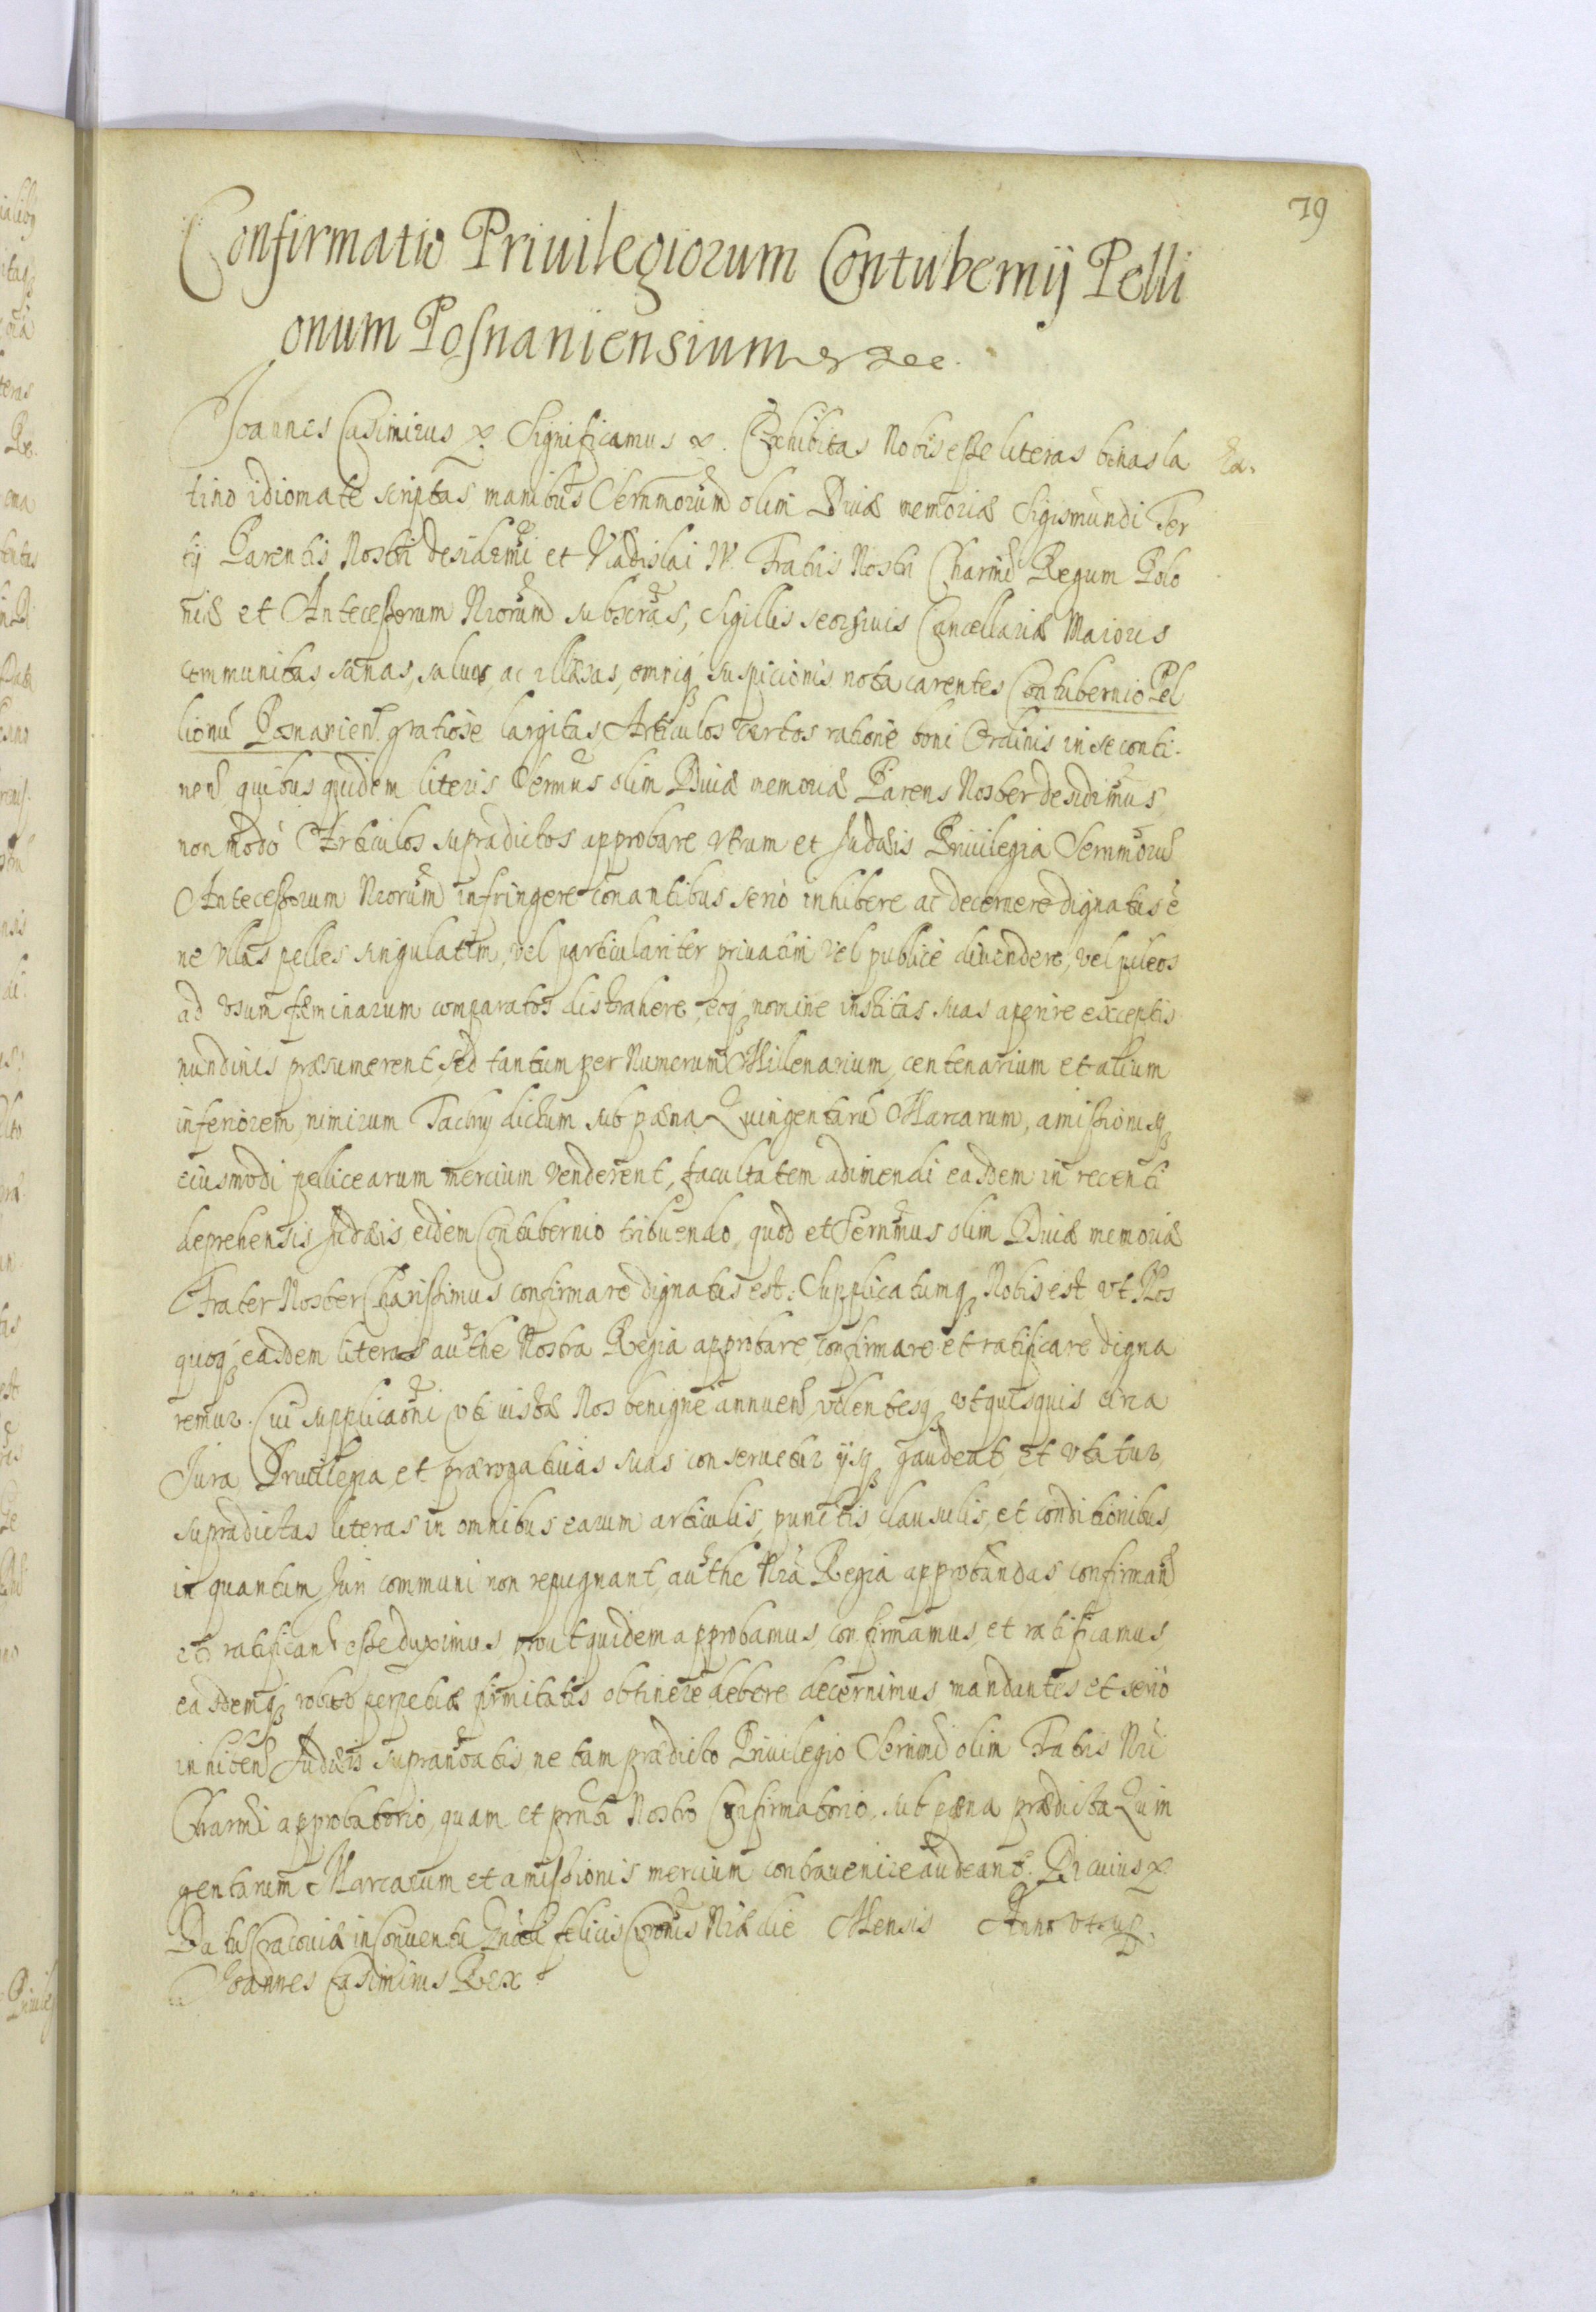 79
Confirmatio Priuilegiorum Contubernij Pelli
onum Posnaniensium
Joannes Casimirus Significamus Exhibitas Nobis esse literas binas la
tino idiomate scriptas manibus Sernmorum olim Diuæ memoriæ Sigismundi Ter
tij Parentis Nostri desidermi et Vladislai IV. Fratris Nostri Charmi Regum Polo
niæ et Antecessorum Nrorum subscras, Sigillis seorsiuis Cancellariæ Maioris
communitas sanas, saluas, ac illæsas, omniq suspicionis nota carentes Contubernio Pel
lionu Posnanien gratiose largitas, Articulos certos ratione boni Ordinis in se conti
nen quibus quidem literis Sermus olim Diuæ memoriæ Parens Noster desidmus
non modo Articulos supradictos approbare verum et Judæis Priuilegia Sernmoru
Antecessorum Nrorum infringere conantibus serio inhibere ac decernere dignatus e
ne vllas pelles singulatim, vel particulariter priuatim vel publice diuendere, vel pileos
ad vsum fæminarum comparatos distrahere, eoq nomine institas suas aperire exceptis
nundinis præsumerent, sed tantum per Numerum Millenarium, centenarium et alium
inferiorem, nimirum Tachry dictum sub pæna Quingentaru Marcarum, amissionisq
eiusmodi pellicearum mercium venderent, facultatem adimendi easdem in recenti
deprehensis Judæis eidem Contubernio tribuendo, quod et Sernmus olim Diuæ memoriæ
Frater Noster Charissimus confirmare dignatus est. Supplicatumq Nobis est vt Nos
quoq easdem literas authe Nostra Regia approbare, confirmare et ratificare digna
remur. Cui supplicaoni vti iustæ Nos benigne annuen, volentesq vt quisquis circa
Jura Priuilegia et prærogatiuas suas conseruetur ijsq gaudeat et vtatur,
supradictas literas in omnibus earum articulis, punctis clausulis, et conditionibus
in quantum Juri communi non repugnant, authe Nra Regia approbandas confirman
et ratifican esse duximus, prout quidem approbamus, confirmamus, et ratificamus,
easdemq robur perpetuæ firmitatis obtinere debere decernimus, mandantes et serio
inhiben Judæis supranotatis, ne tam prædicto Priuilegio Sernmi olim Fratris Nri
Charmi approbatorio, quam et prnti Nostro Confirmatorio, sub pæna prædicta Quin
gentarum Marcarum et amissionis mercium contrauenire audeant. In cuius
Datu Cracouiæ in Conuentu Gnali felicis Coronis Nræ die Mensis Anno vt sup.
Joannes Casimirus Rex